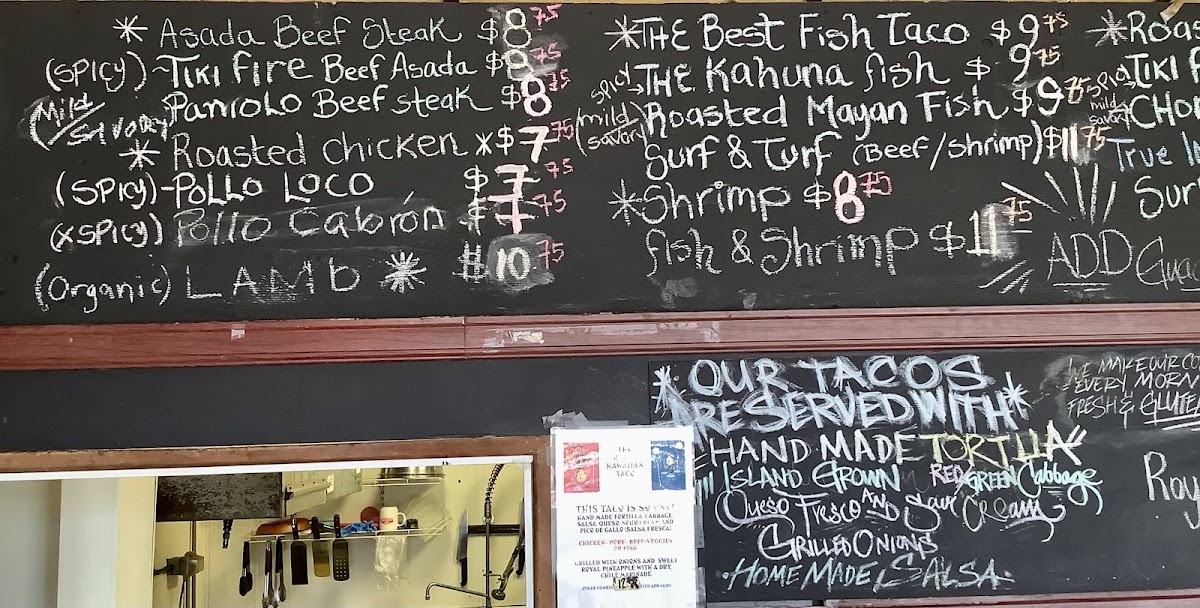 * Asada Beef Steak $8.75
(SPICY) ~ TIKI fire Beef Asada $8.75
(Mild/SAVORY) PANIOLO Beef steak $8.75
* Roasted chicken * $7.75
(SPICY) - POLLO LOCO $7.75
(XSPICY) Pollo Cabrón $7.75
(Organic) LAMb * $10.75
* THE Best Fish Taco $9.75
spicy → THE Kahuna fish $9.75
(mild savory) Roasted Mayan Fish $9.75
Surf & Turf (Beef/Shrimp) $11.75
* Shrimp $8.75
fish & Shrimp $11.75
* Roas
spicy → TIKI f
mild savory CHO
True I
Sur
ADD Guac
* OUR TACOS
ARE SERVED WITH *
HAND MADE TORTILLA
ISLAND GROWN RED GREEN Cabbage
Queso Fresco AND Sour Cream
GRILLED ONIONS
HOMEMADE SALSA
WE MAKE OUR CO
EVERY MORN
FRESH & GLUTE
Roy
THE
HAWAIIAN
TACO
THIS TACO IS SO ONO!
HAND MADE TORTILLA, CABBAGE,
SALSA, QUESO, SOUR CREAM AND
PICO DE GALLO (SALSA FRESCA)
CHICKEN- PORK- BEEF-VEGGIES
OR FISH
GRILLED WITH ONIONS AND SWEET
ROYAL PINEAPPLE WITH A DRY,
CHILE MARINADE.